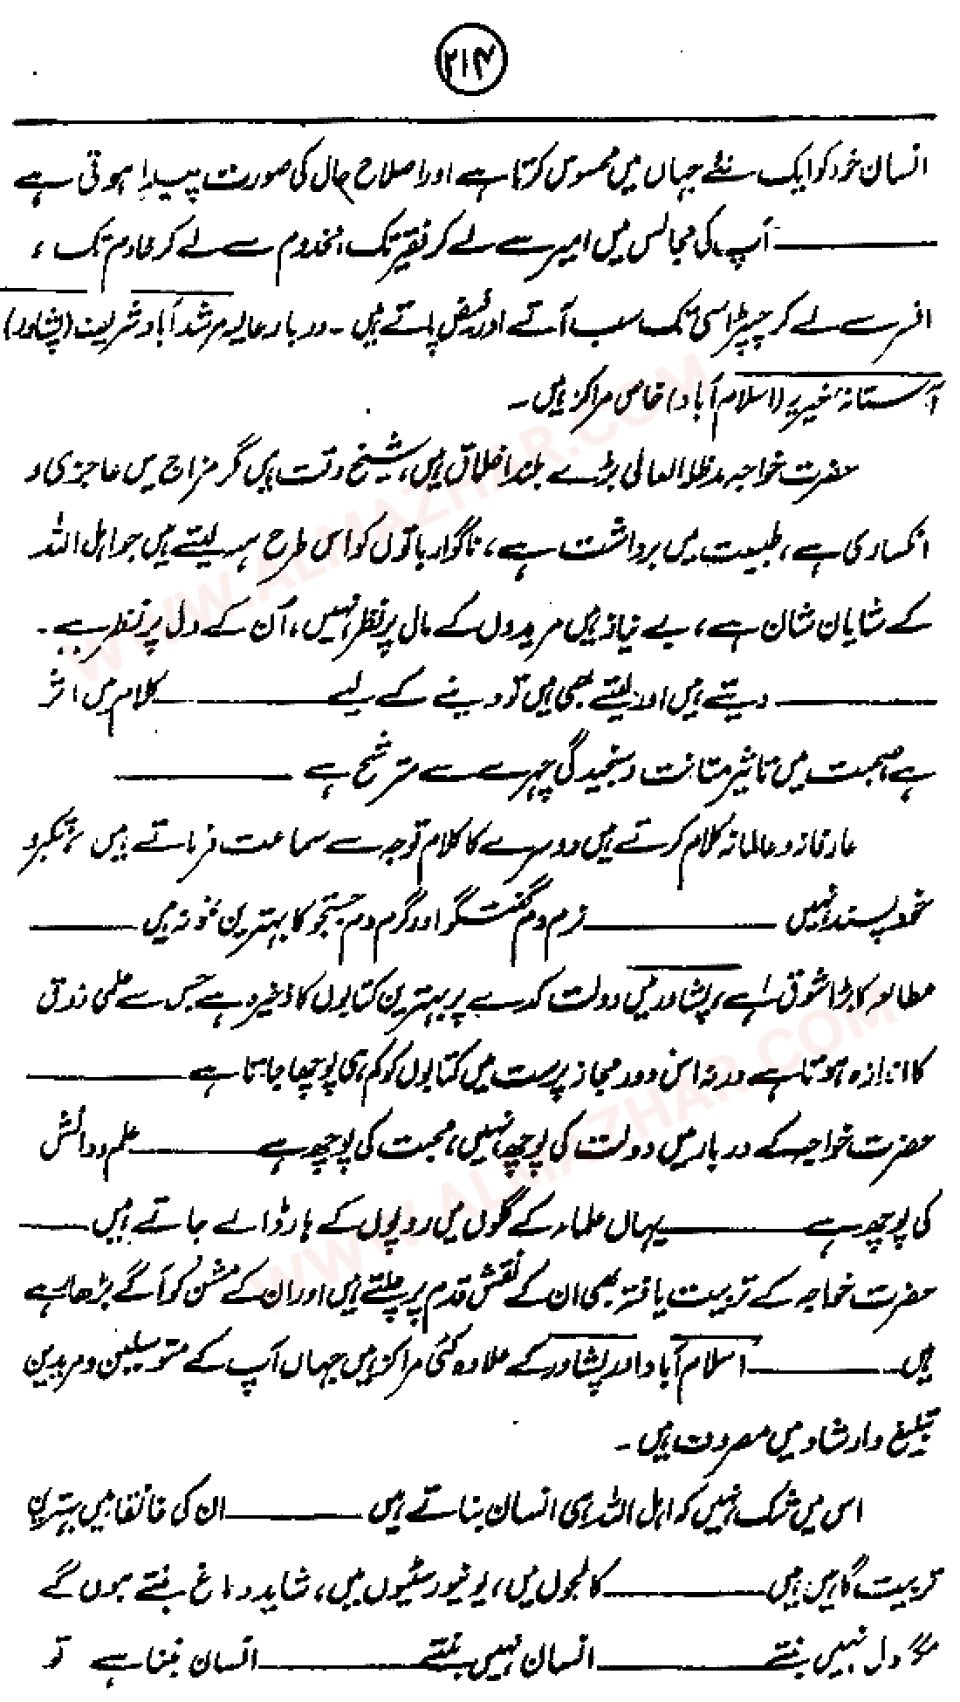 ۲۱۴
انسان خود کو ایک نئے جہاں میں محسوس کرتا ہے اور اصلاح حال کی صورت پیدا ہوتی ہے
ــــــــ آپ کی مجالس میں امیر سے لے کر فقیر تک، مخدوم سے لے کر خادم تک،
افسر سے لے کر چپڑاسی تک سب آتے اور فیض پاتے ہیں۔ دربار عالیہ مرشد آباد شریف (پشاور)
آستانہ خیریہ (اسلام آباد) خاص مراکز ہیں۔
حضرت خواجہ مدظلہ العالی بڑے بلند اخلاق ہیں، شیخ وقت ہیں مگر مزاج میں عاجزی و
انکساری ہے، طبیعت میں برداشت ہے، ناگوار باتوں کو اس طرح سہہ لیتے ہیں جو اہل اللہ
کے شایان شان ہے، بے نیاز ہیں مریدوں کے مال پر نظر نہیں، اُن کے دل پر نظر ہے۔
ــــــــ دیتے ہیں اور لیتے بھی ہیں تو دینے کے لیے ــــــــ کلام میں اثر
ہے صحبت میں تاثیر متانت و سنجیدگی چہرے سے مترشح ہے ــــــــ
عارفانہ و عالمانہ کلام کرتے ہیں دوسرے کا کلام توجہ سے سماعت فرماتے ہیں، متکبر و
خود پسند نہیں ــــــــ نرم دم گفتگو اور گرم دم جستجو کا بہترین نمونہ ہیں ــــــــ
مطالعہ کا بڑا شوق ہے، پشاور میں دولت کدے پر بہترین کتابوں کا ذخیرہ ہے جس سے علمی ذوق
کا اندازہ ہوتا ہے ورنہ اس دور مجاز پرست میں کتابوں کو کم ہی پوچھا جاتا ہے ــــــــ
حضرت خواجہ کے دربار میں دولت کی پوچھ نہیں، محبت کی پوچھ ہے ــــــــ علم و دانش
کی پوچھ ہے ــــــــ یہاں علماء کے گلوں میں روپوں کے ہار ڈالے جاتے ہیں ــــــــ
حضرت خواجہ کے تربیت یافتہ بھی ان کے نقش قدم پر چلتے ہیں اور ان کے مشن کو آگے بڑھا رہے
ہیں ــــــــ اسلام آباد اور پشاور کے علاوہ کئی مراکز ہیں جہاں آپ کے متوسلین و مریدین
تبلیغ و ارشاد میں مصروف ہیں۔
اس میں شک نہیں کہ اہل اللہ ہی انسان بناتے ہیں ــــــــ ان کی خانقاہیں بہترین
تربیت گاہیں ہیں ــــــــ کالجوں میں، یونیورسٹیوں میں، شاید دماغ بنتے ہوں گے
مگر دل نہیں بنتے ــــــــ انسان نہیں بنتے ــــــــ انسان بننا ہے تو
WWW.ALMAZHAR.COM
WWW.ALMAZHAR.COM